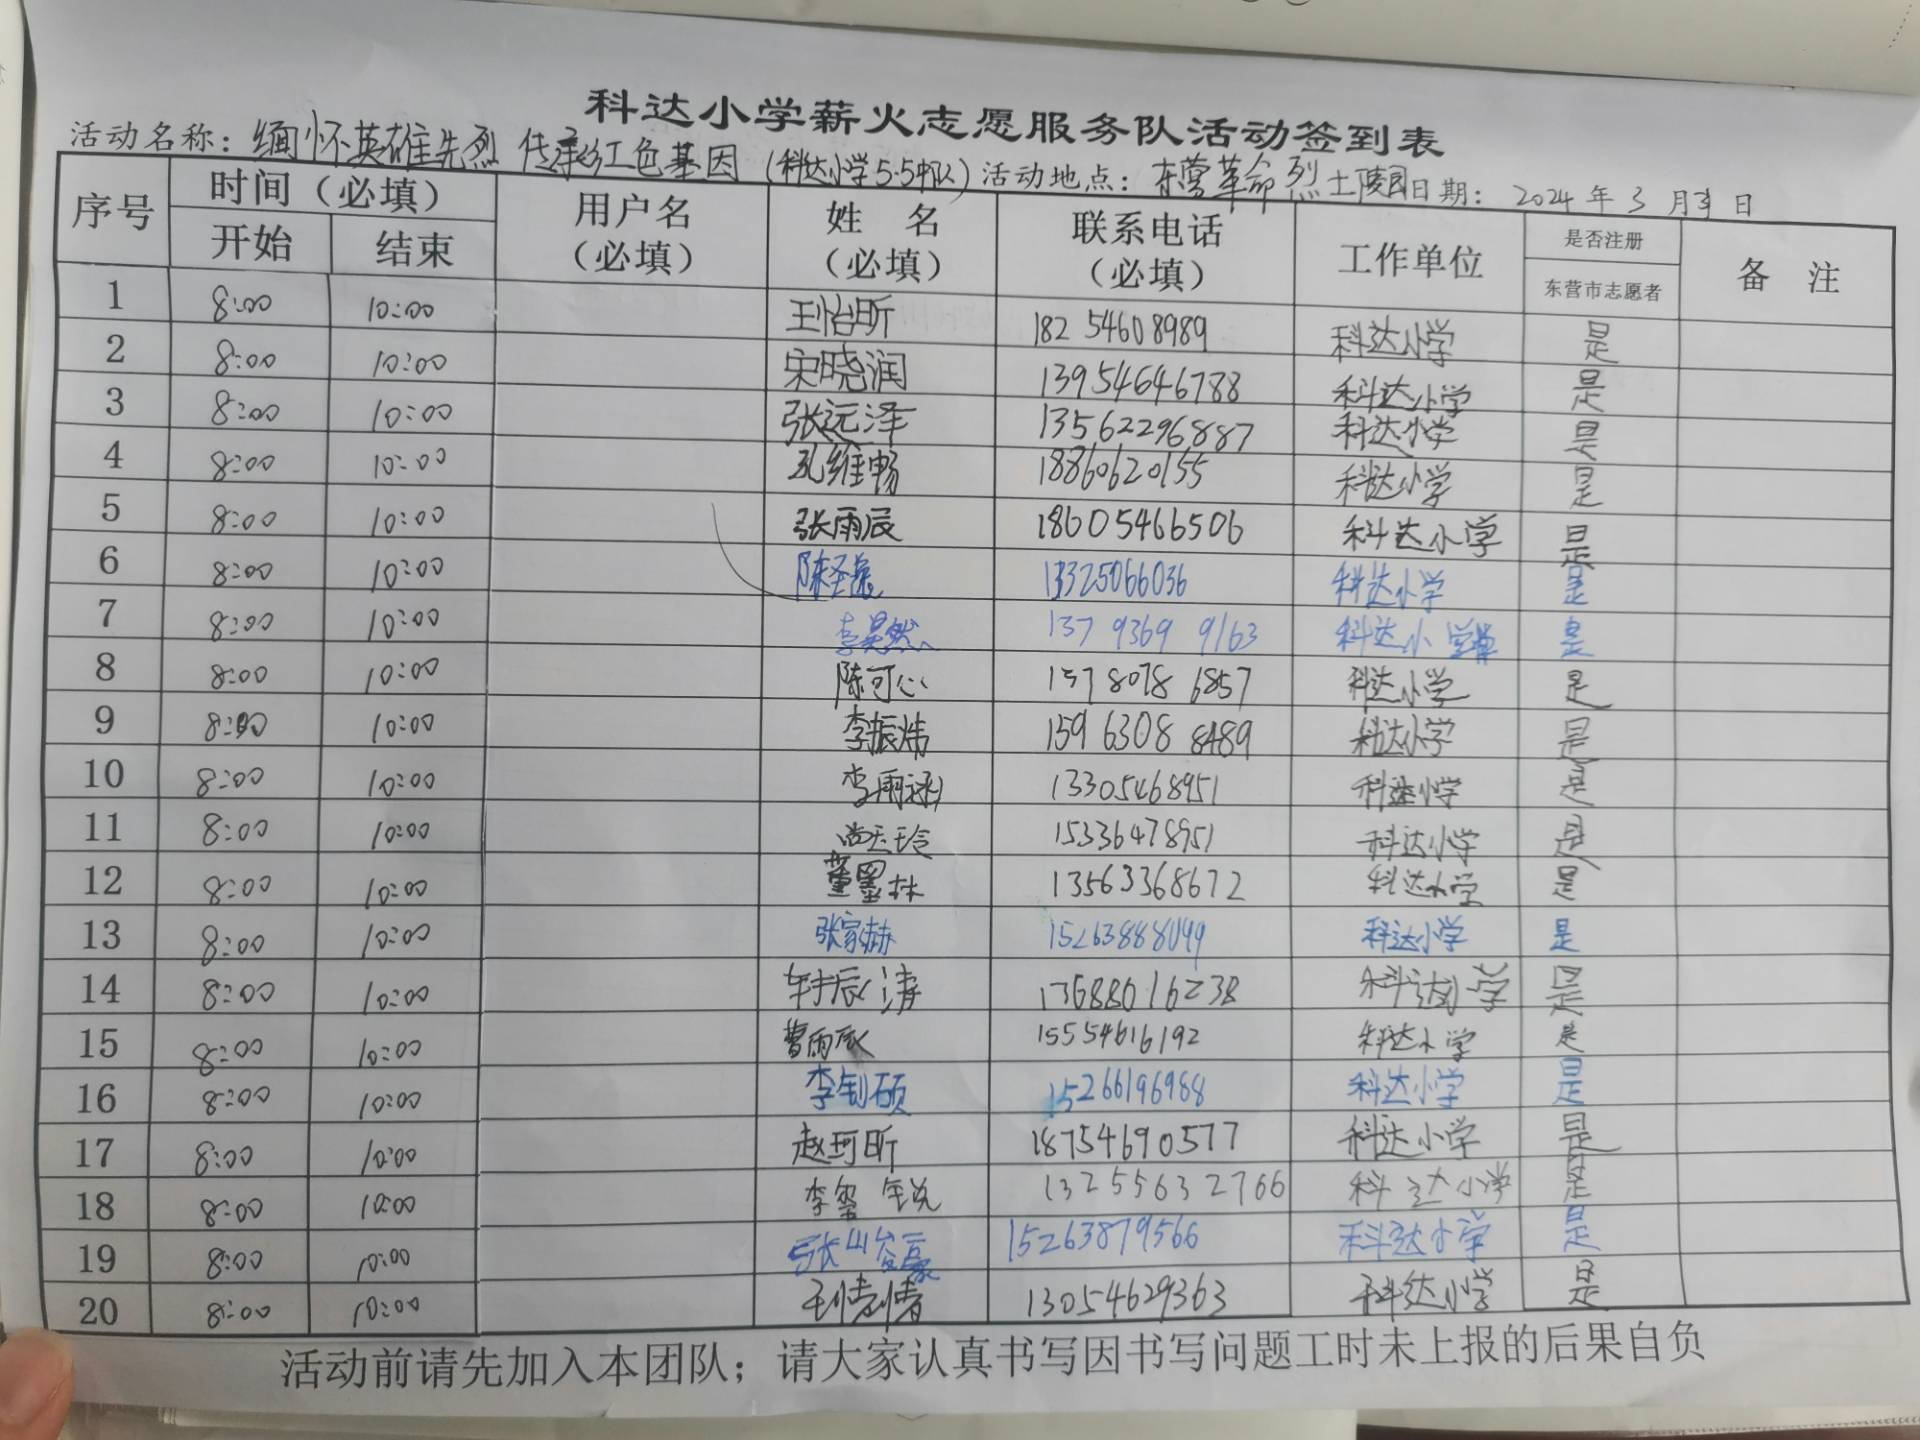 科达小学薪火志愿服务队活动签到表
活动名称：缅怀英雄先烈 传承红色基因（科达小学5.5中队）活动地点：东营革命烈士陵园 日期：2024年3月 日
序号 时间（必填） 用户名（必填） 姓 名（必填） 联系电话（必填） 工作单位 是否注册 东营市志愿者 备 注
开始 结束
1 8:00 10:00 王怡昕 18254608989 科达小学 是
2 8:00 10:00 宋晓润 13954646788 科达小学 是
3 8:00 10:00 张远泽 13562296887 科达小学 是
4 8:00 10:00 孔维畅 18860620155 科达小学 是
5 8:00 10:00 张雨辰 18605466506 科达小学 是
6 8:00 10:00 陈圣 13325066036 科达小学 是
7 8:00 10:00 李昊然 137 9369 9163 科达小学 是
8 8:00 10:00 陈可心 157 8078 6857 科达小学 是
9 8:00 10:00 李振炜 159 6308 8489 科达小学 是
10 8:00 10:00 李雨 13305468951 科达小学 是
11 8:00 10:00 尚天玲 15336478951 科达小学 是
12 8:00 10:00 董墨林 13563368672 科达小学 是
13 8:00 10:00 张家赫 15263888049 科达小学 是
14 8:00 10:00 辰涛 13688016238 科达小学 是
15 8:00 10:00 曹雨辰 15554616192 科达小学 是
16 8:00 10:00 李钊硕 15266196988 科达小学 是
17 8:00 10:00 赵珂昕 18754690577 科达小学 是
18 8:00 10:00 李玺锐 13255632766 科达小学 是
19 8:00 10:00 张山谷豪 15263879566 科达小学 是
20 8:00 10:00 王倩倩 13054629363 科达小学 是
活动前请先加入本团队；请大家认真书写因书写问题工时未上报的后果自负